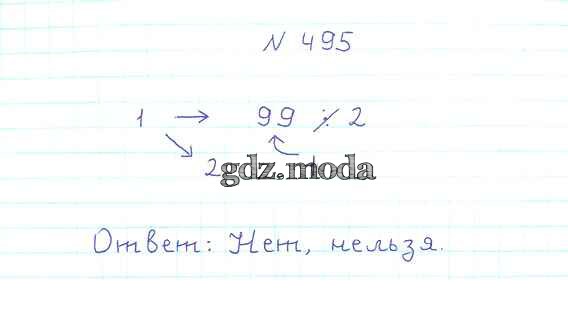 N 495
1 → 99 ⁒ 2
2 gdz.moda
Ответ: Нет, нельзя.